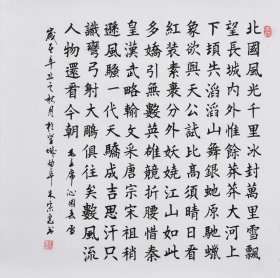 北國風光千里冰封萬里雪飄
望長城内外惟餘莽莽大河上
下頓失滔滔山舞銀蛇原馳蠟
象欲與天公試比高須晴日看
紅裝素裹分外妖嬈江山如此
多嬌引無數英雄競折腰惜秦
皇漢武略輸文采唐宗宋祖稍
遜風騷一代天驕成吉思汗只
識彎弓射大鵰俱往矣數風流
人物還看今朝 毛主席沁園春雪
歲在辛丑之秋月於書